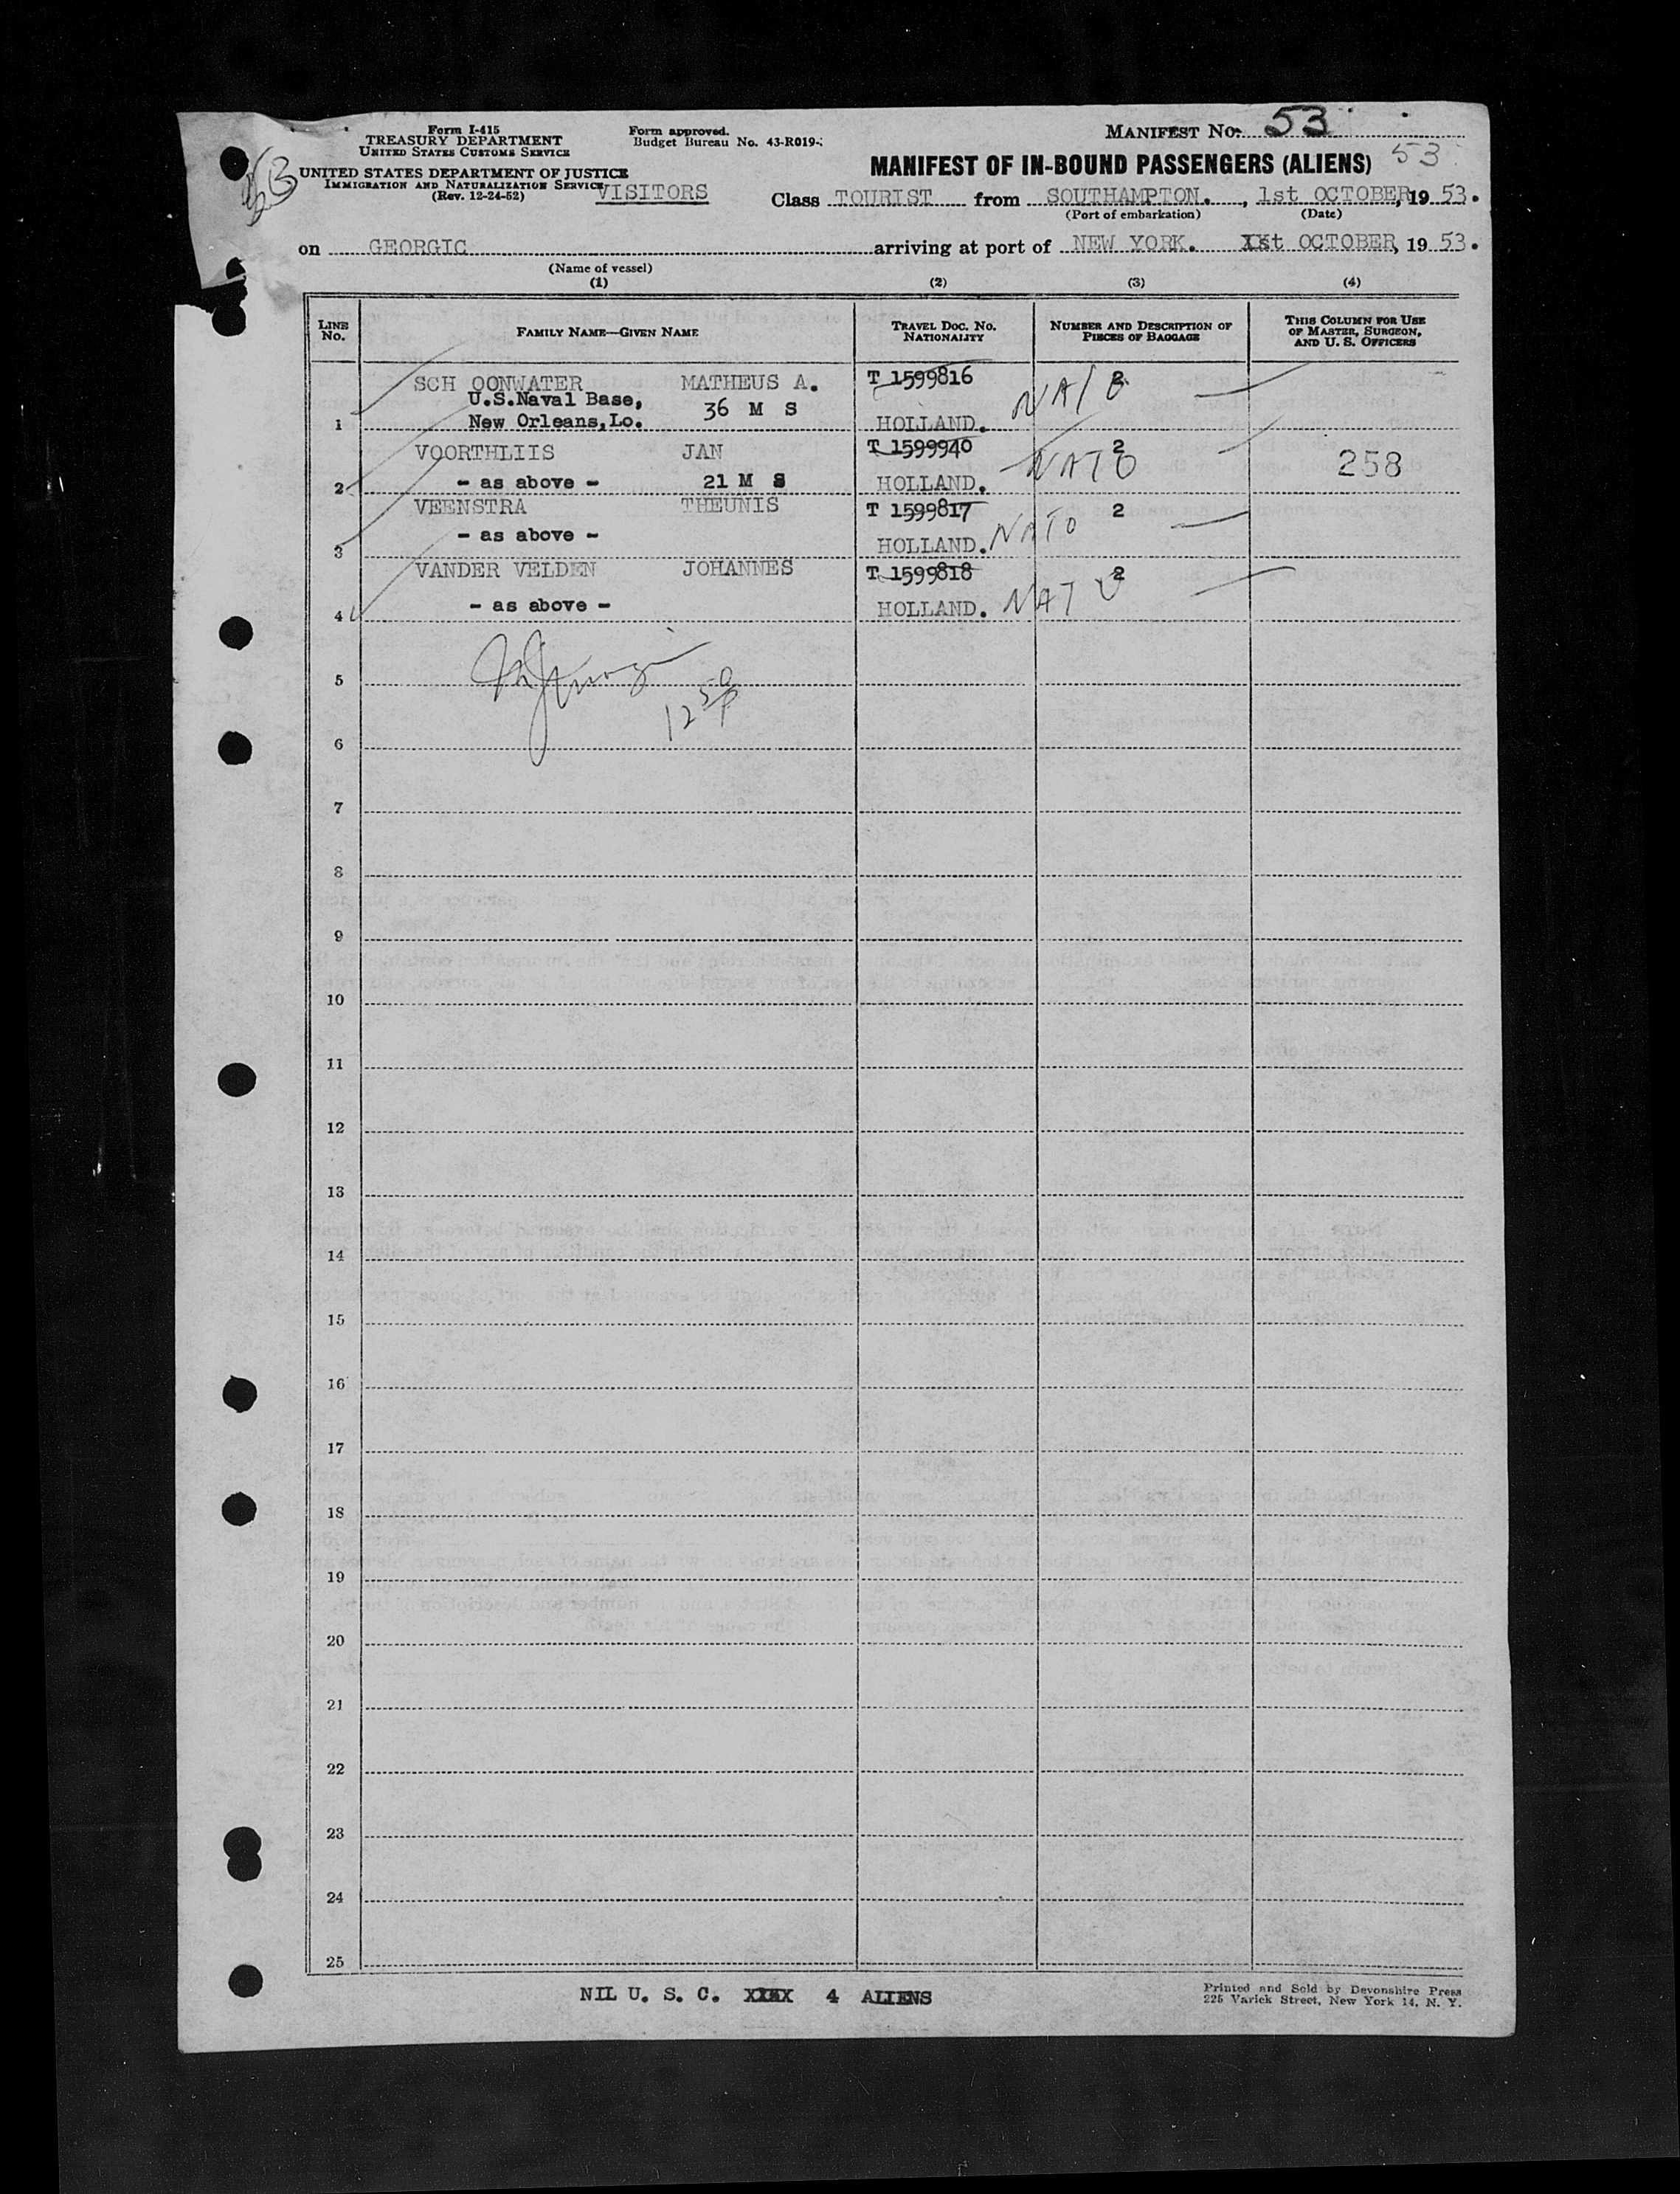 Form I-415
TREASURY DEPARTMENT
UNITED STATES CUSTOMS SERVICE
UNITED STATES DEPARTMENT OF JUSTICE
IMMIGRATION AND NATURALIZATION SERVICE
(Rev. 12-24-52)
53
VISITORS
Form approved.
Budget Bureau No. 43-R019-
MANIFEST No. 53
MANIFEST OF IN-BOUND PASSENGERS (ALIENS) 53
Class TOURIST from SOUTHAMPTON. , 1st OCTOBER, 19 53.
(Port of embarkation) (Date)
on GEORGIC arriving at port of NEW YORK. st OCTOBER, 19 53.
(Name of vessel)
(1) (2) (3) (4)
LINE No. FAMILY NAME—GIVEN NAME TRAVEL DOC. NO. NATIONALITY NUMBER AND DESCRIPTION OF PIECES OF BAGGAGE THIS COLUMN FOR USE OF MASTER, SURGEON, AND U. S. OFFICERS
SCH OONWATER MATHEUS A. T 1599816 2 NATO
U.S.Naval Base, 36 M S
1 New Orleans,Lo. HOLLAND.
VOORTHLIIS JAN T 1599940 2 NATO 258
2 - as above - 21 M S HOLLAND.
VEENSTRA THEUNIS T 1599817 2
3 - as above - HOLLAND. NATO
VANDER VELDEN JOHANNES T 1599818 2
4 - as above - HOLLAND. NATO
5
12 50 P
6
7
8
9
10
11
12
13
14
15
16
17
18
19
20
21
22
23
24
25
NIL U. S. C. 4 ALIENS
Printed and Sold by Devonshire Press
225 Varick Street, New York 14, N. Y.